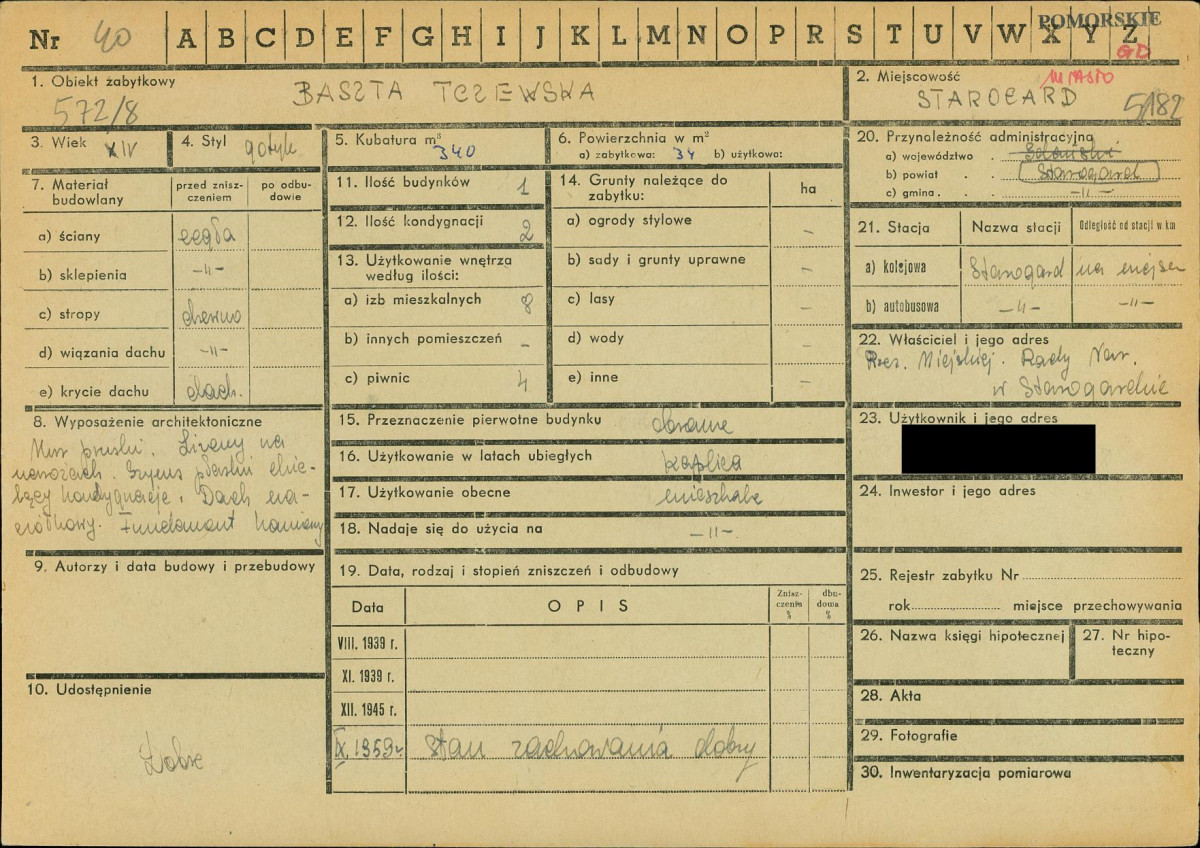 Nr 40 A B C D E F G H I J K L M N O P R S T U V W X Y Z
POMORSKIE
GD
1. Obiekt zabytkowy
572/8
BASZTA TCZEWSKA
2. Miejscowość
MIASTO
STAROGARD
5/182
3. Wiek XIV
4. Styl gotyk
5. Kubatura m³ 340
6. Powierzchnia w m²
a) zabytkowa: 34 b) użytkowa:
7. Materiał budowlany
przed zniszczeniem
po odbudowie
a) ściany cegła
b) sklepienia -"-
c) stropy drewno
d) wiązania dachu -"-
e) krycie dachu dach.
8. Wyposażenie architektoniczne
Mur pruski. Lizeny na
narożach. Gzyms płaski
kondygnacje. Dach na-
Fundament kamienny
9. Autorzy i data budowy i przebudowy
10. Udostępnienie
Dobre
11. Ilość budynków 1
12. Ilość kondygnacji 2
13. Użytkowanie wnętrza
według ilości:
a) izb mieszkalnych 8
b) innych pomieszczeń -
c) piwnic 4
14. Grunty należące do
zabytku:
ha
a) ogrody stylowe -
b) sady i grunty uprawne -
c) lasy -
d) wody -
e) inne -
15. Przeznaczenie pierwotne budynku obronne
16. Użytkowanie w latach ubiegłych kaplica
17. Użytkowanie obecne mieszkalne
18. Nadaje się do użycia na -"-
19. Data, rodzaj i stopień zniszczeń i odbudowy
Data
OPIS
Zniszczenia %
dbudowa %
VIII. 1939 r.
XI. 1939 r.
XII. 1945 r.
IX. 1959 r. Stan zachowania dobry
20. Przynależność administracyjną
a) województwo . Gdański
b) powiat . . Starogard
c) gmina . . . -"-
21. Stacja
Nazwa stacji
Odległość od stacji w km
a) kolejowa Starogard na miejscu
b) autobusowa -"- -"-
22. Właściciel i jego adres
Prez. Miejskiej. Rady Nar.
w Starogardzie
23. Użytkownik i jego adres
24. Inwestor i jego adres
25. Rejestr zabytku Nr
rok miejsce przechowywania
26. Nazwa księgi hipotecznej
27. Nr hipoteczny
28. Akta
29. Fotografie
30. Inwentaryzacja pomiarowa